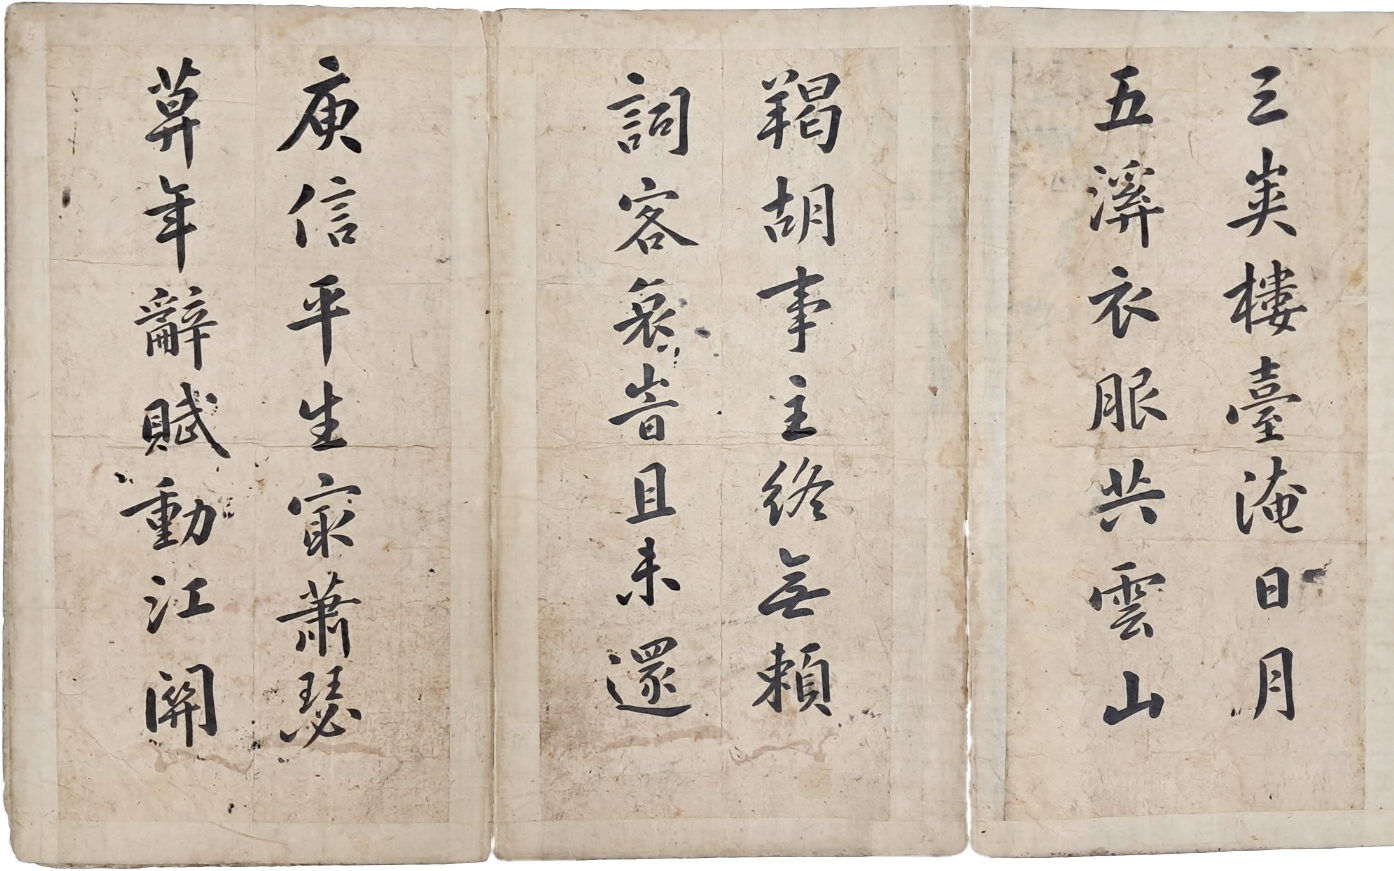 三峽樓臺淹日月
五溪衣服共雲山
羯胡事主終無賴
詞客哀旹且未還
庾信平生冣蕭瑟
莫年辭賦動江關